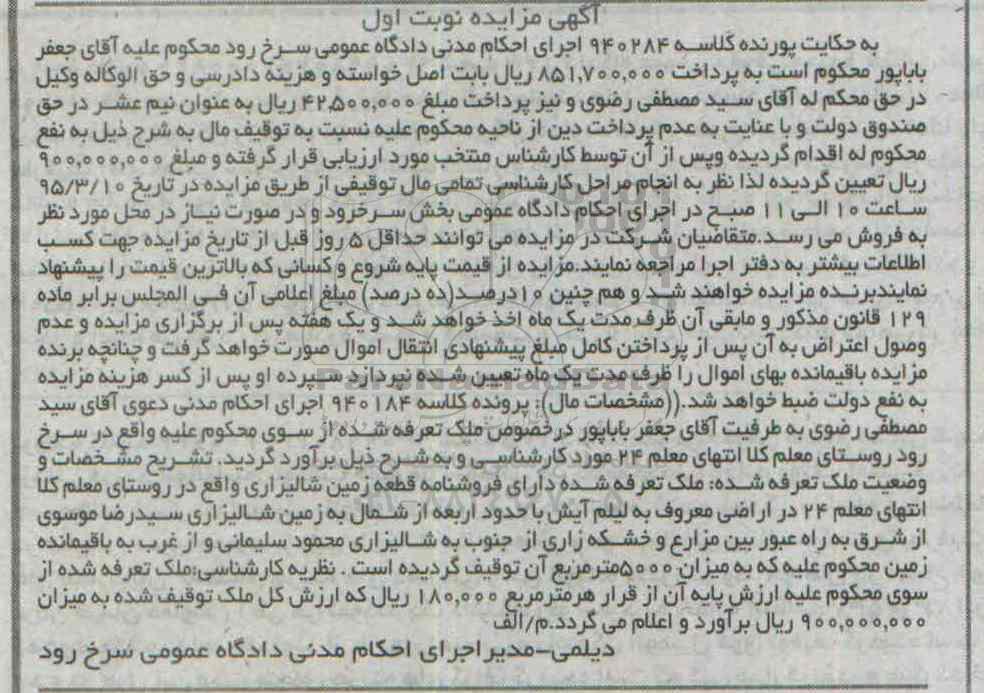 آگهی مزایده نوبت اول
به حکایت پورنده کلاسه ۹۴۰۲۸۴ اجرای احکام مدنی دادگاه عمومی سرخ رود محکوم علیه آقای جعفر
باباپور محکوم است به پرداخت ۸۵۱,۷۰۰,۰۰۰ ریال بابت اصل خواسته و هزینه دادرسی و حق الوکاله وکیل
در حق محکم له آقای سید مصطفی رضوی و نیز پرداخت مبلغ ۴۲,۵۰۰,۰۰۰ ریال به عنوان نیم عشر در حق
صندوق دولت و با عنایت به عدم پرداخت دین از ناحیه محکوم علیه نسبت به توقیف مال به شرح ذیل به نفع
محکوم له اقدام گردیده وپس از آن توسط کارشناس منتخب مورد ارزیابی قرار گرفته و مبلغ ۹۰۰,۰۰۰,۰۰۰
ریال تعیین گردیده لذا نظر به انجام مراحل کارشناسی تمامی مال توقیفی از طریق مزایده در تاریخ ۹۵/۳/۱۰
ساعت ۱۰ الی ۱۱ صبح در اجرای احکام دادگاه عمومی بخش سرخرود و در صورت نیاز در محل مورد نظر
به فروش می رسد.متقاضیان شرکت در مزایده می توانند حداقل ۵ روز قبل از تاریخ مزایده جهت کسب
اطلاعات بیشتر به دفتر اجرا مراجعه نمایند.مزایده از قیمت پایه شروع و کسانی که بالاترین قیمت را پیشنهاد
نمایندبرنده مزایده خواهند شد و هم چنین ۱۰درصد(ده درصد) مبلغ اعلامی آن فی المجلس برابر ماده
۱۲۹ قانون مذکور و مابقی آن ظرف مدت یک ماه اخذ خواهد شد و یک هفته پس از برگزاری مزایده و عدم
وصول اعتراض به آن پس از پرداختن کامل مبلغ پیشنهادی انتقال اموال صورت خواهد گرفت و چنانچه برنده
مزایده باقیمانده بهای اموال را ظرف مدت یک ماه تعیین شده نپردازد سپرده او پس از کسر هزینه مزایده
به نفع دولت ضبط خواهد شد.((مشخصات مال): پرونده کلاسه ۹۴۰۱۸۴ اجرای احکام مدنی دعوی آقای سید
مصطفی رضوی به طرفیت آقای جعفر باباپور درخصوص ملک تعرفه شده از سوی محکوم علیه واقع در سرخ
رود روستای معلم کلا انتهای معلم ۲۴ مورد کارشناسی و به شرح ذیل برآورد گردید. تشریح مشخصات و
وضعیت ملک تعرفه شده: ملک تعرفه شده دارای فروشنامه قطعه زمین شالیزاری واقع در روستای معلم کلا
انتهای معلم ۲۴ در اراضی معروف به لیلم آیش با حدود اربعه از شمال به زمین شالیزاری سیدرضا موسوی
از شرق به راه عبور بین مزارع و خشکه زاری از جنوب به شالیزاری محمود سلیمانی و از غرب به باقیمانده
زمین محکوم علیه که به میزان ۵۰۰۰مترمربع آن توقیف گردیده است . نظریه کارشناسی:ملک تعرفه شده از
سوی محکوم علیه ارزش پایه آن از قرار هرمترمربع ۱۸۰,۰۰۰ ریال که ارزش کل ملک توقیف شده به میزان
۹۰۰,۰۰۰,۰۰۰ ریال برآورد و اعلام می گردد.م/الف
دیلمی-مدیر اجرای احکام مدنی دادگاه عمومی سرخ رود